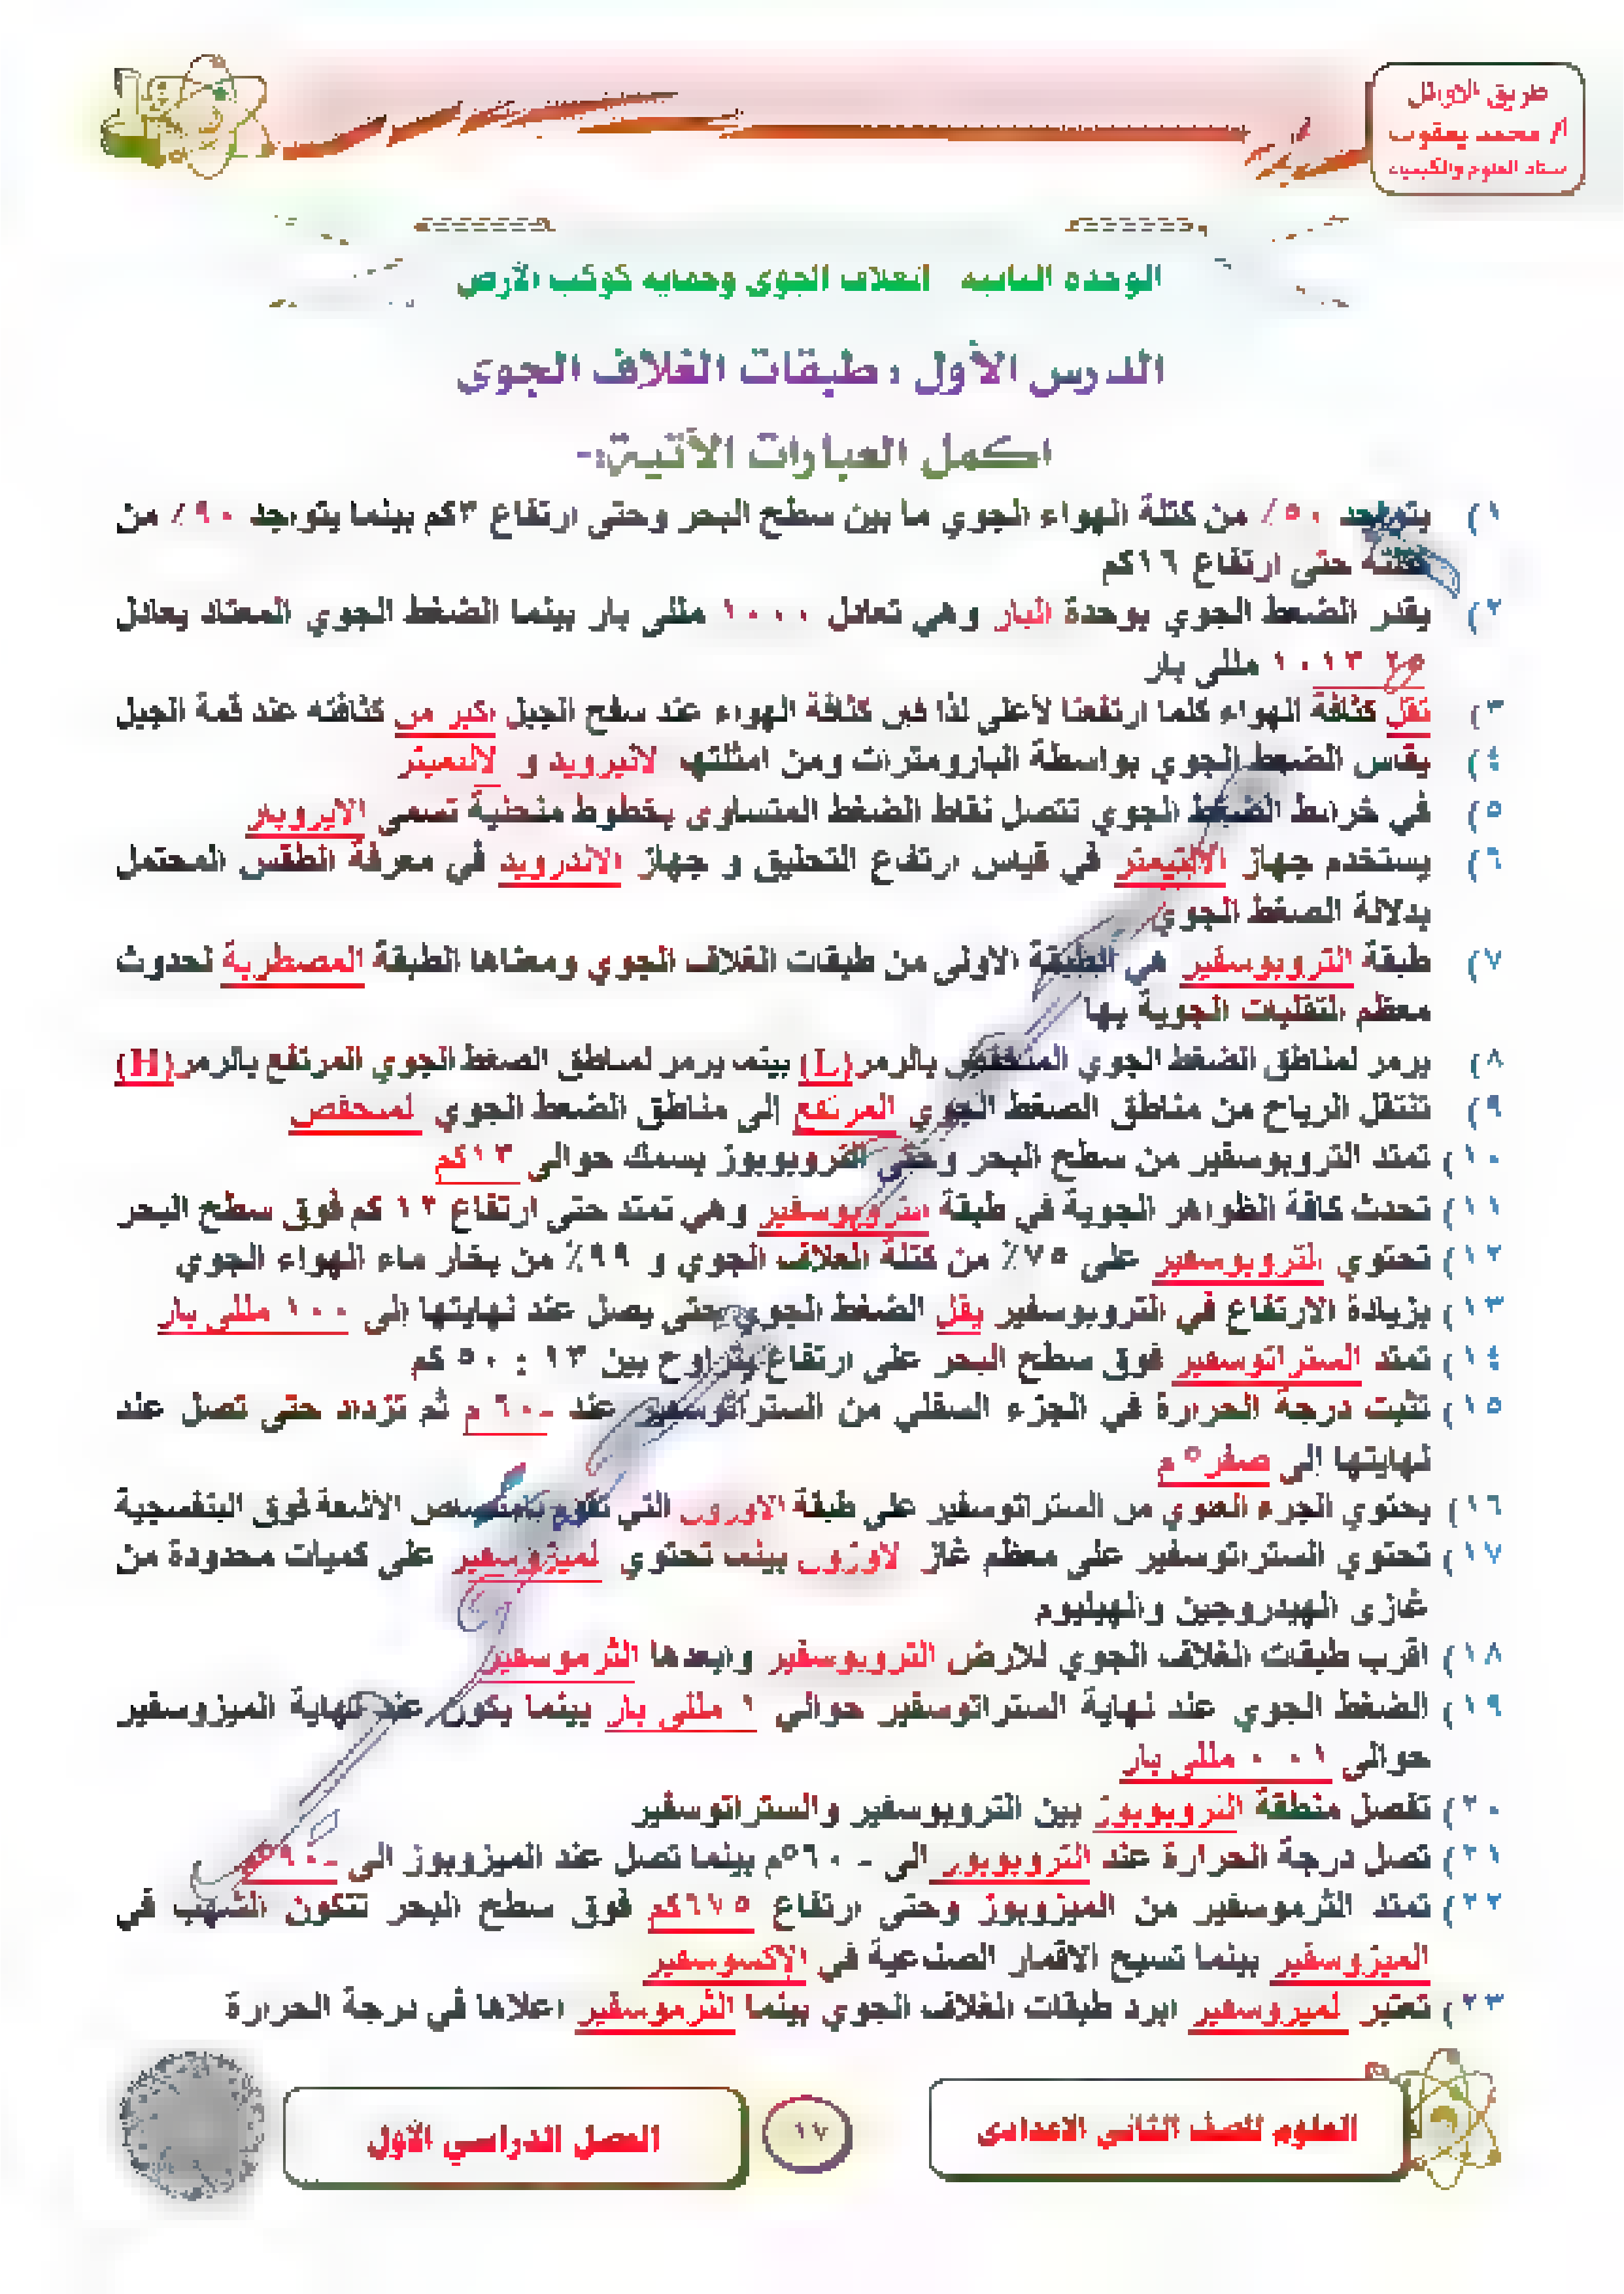 طريق الاوائل
أ/ محمد يعقوب
ستاذ العلوم والكيمياء
الوحده الثانيه الغلاف الجوى وحمايه كوكب الأرض
الدرس الأول : طبقات الغلاف الجوى
اكمل العبارات الآتية:-
١) يتواجد ٥٠٪ من كتلة الهواء الجوي ما بين سطح البحر وحتى ارتفاع ٣كم بينما يتواجد ٩٠٪ من
كتلته حتى ارتفاع ١٦كم
٢) يقدر الضغط الجوي بوحدة البار وهي تعادل ١٠٠٠ مللى بار بينما الضغط الجوي المعتاد يعادل
١٠١٣ ٢٥ مللى بار
٣) تقل كثافة الهواء كلما ارتفعنا لأعلى لذا فإن كثافة الهواء عند سفح الجبل اكبر من كثافته عند قمة الجبل
٤) يقاس الضغط الجوي بواسطة البارومترات ومن امثلتها الانيرويد و الالتميتر
٥) في خرائط الضغط الجوي تتصل نقاط الضغط المتساوى بخطوط منحنية تسمى الايزوبار
٦) يستخدم جهاز الالتيميتر في قياس ارتفاع التحليق و جهاز الاندرويد في معرفة الطقس المحتمل
بدلالة الضغط الجوي
٧) طبقة التروبوسفير هي الطبقة الاولى من طبقات الغلاف الجوي ومعناها الطبقة المضطربة لحدوث
معظم التقلبات الجوية بها
٨) يرمز لمناطق الضغط الجوي المنخفض بالرمز(L) بينما يرمز لمناطق الضغط الجوي المرتفع بالرمز(H)
٩) تنتقل الرياح من مناطق الضغط الجوي المرتفع إلى مناطق الضغط الجوي المنخفض
١٠) تمتد التروبوسفير من سطح البحر وحتى التروبوبوز بسمك حوالى ١٣كم
١١) تحدث كافة الظواهر الجوية في طبقة التروبوسفير وهي تمتد حتى ارتفاع ١٣ كم فوق سطح البحر
١٢) تحتوي التروبوسفير على ٧٥٪ من كتلة الغلاف الجوي و ٩٩٪ من بخار ماء الهواء الجوي
١٣) بزيادة الارتفاع في التروبوسفير يقل الضغط الجوي حتى يصل عند نهايتها إلى ١٠٠ مللى بار
١٤) تمتد الستراتوسفير فوق سطح البحر على ارتفاع يتراوح بين ١٣ : ٥٠ كم
١٥) تثبت درجة الحرارة في الجزء السفلي من الستراتوسفير عند -٦٠ م ثم تزداد حتى تصل عند
نهايتها إلى صفر٥ م
١٦) يحتوي الجزء العلوي من الستراتوسفير على طبقة الاوزون التي تقوم بامتصاص الأشعة فوق البنفسجية
١٧) تحتوي الستراتوسفير على معظم غاز الاوزون بينما تحتوي الميزوسفير على كميات محدودة من
غازى الهيدروجين والهيليوم
١٨) اقرب طبقات الغلاف الجوي للارض التروبوسفير وابعدها الثرموسفير
١٩) الضغط الجوي عند نهاية الستراتوسفير حوالي ١ مللى بار بينما يكون عند نهاية الميزوسفير
حوالى ٠١ ٠ مللى بار
٢٠) تفصل منطقة التروبوبوز بين التروبوسفير والستراتوسفير
٢١) تصل درجة الحرارة عند التروبوبوز الى -٥٦٠م بينما تصل عند الميزوبوز الى -٥٩٠م
٢٢) تمتد الثرموسفير من الميزوبوز وحتى ارتفاع ٦٧٥كم فوق سطح البحر تتكون الشهب في
الميزوسفير بينما تسبح الاقمار الصناعية في الإكسوسفير
٢٣) تعتبر الميزوسفير ابرد طبقات الغلاف الجوي بينما الثرموسفير اعلاها في درجة الحرارة
العلوم للصف الثانى الاعدادى
١٧
الفصل الدراسي الأول